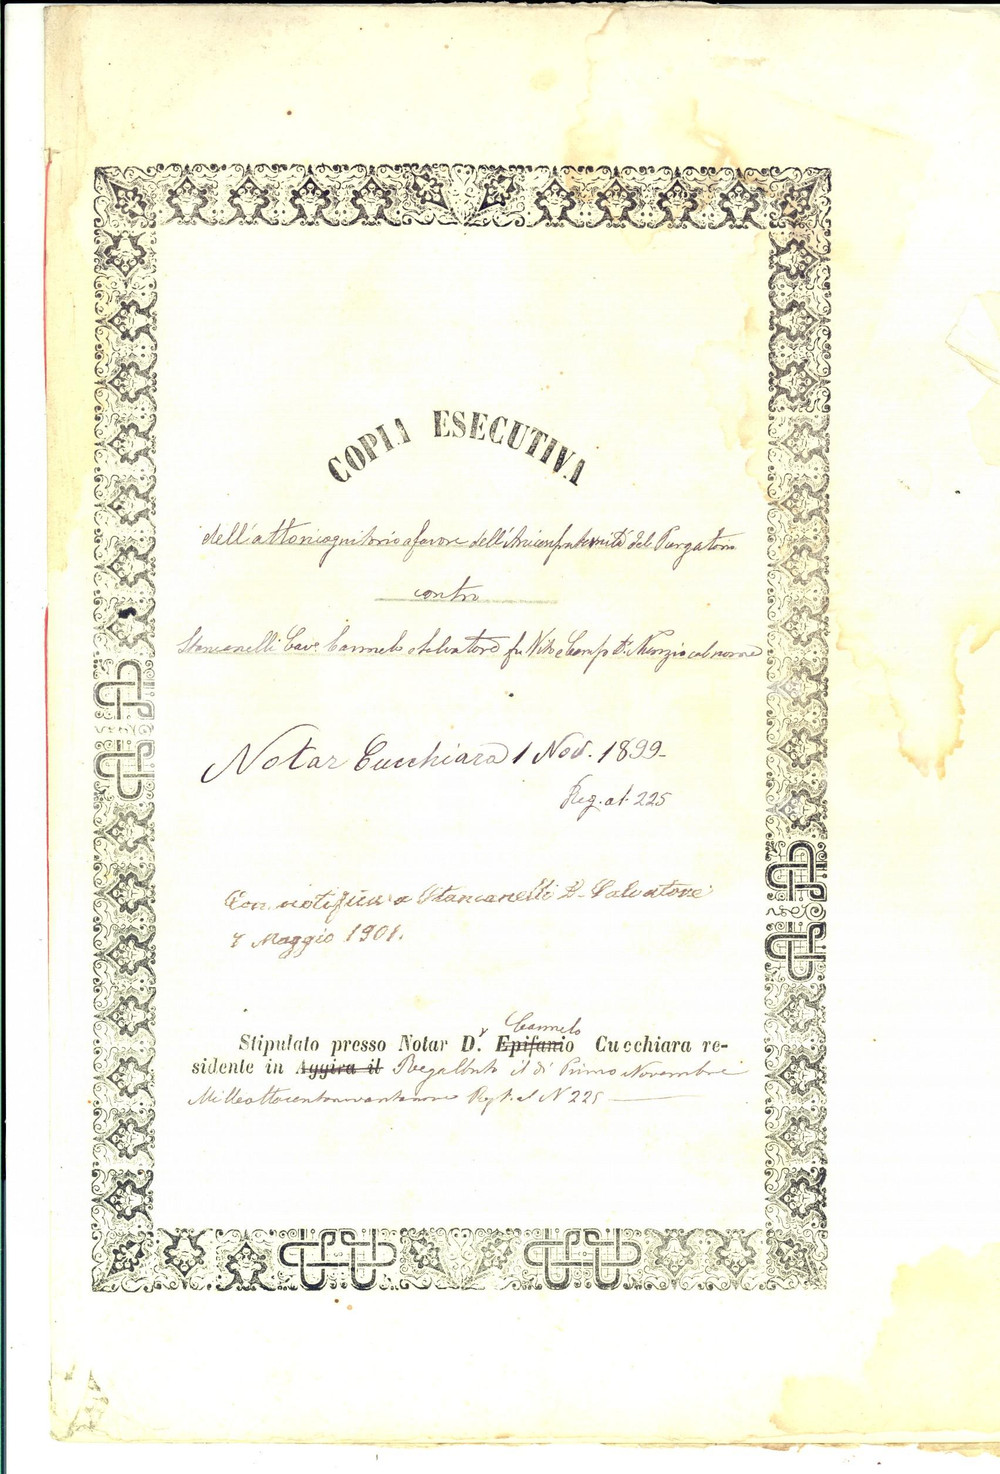 COPIA ESECUTIVA
dell'atto ricognitorio a favore dell'Arciconfraternità del Purgatorio
contro
Stancanelli Cav.r Carmelo e Salvatore fu Vito e Nunzio col nome
Notar Cucchiara 1 Nov. 1899-
Reg. at 225
Con notifica a Stancanelli D. Salvatore
7 Maggio 1901.
Carmelo
Stipulato presso Notar D.r Epifanio Cucchiara re-
sidente in Aggira il Regalbuto il dì Primo Novembre
Milleottocentonovantanove Regt. al N 225